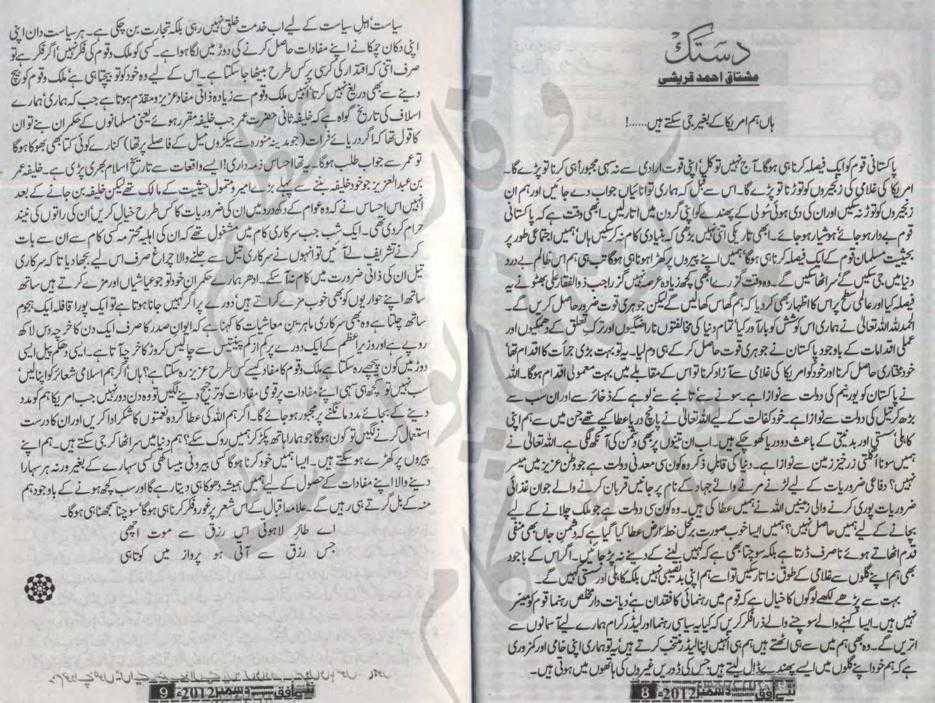 دستک
مشتاق احمد قریشی
ہاں ہم امریکا کے بغیر جی سکتے ہیں......!
پاکستانی قوم کو ایک فیصلہ کرنا ہی ہوگا آج نہیں تو کل، اپنی قوت ارادی سے نہ سہی مجبوراً ہی کرنا تو پڑے گا۔
امریکا کی غلامی کی زنجیروں کو توڑنا تو پڑے گا۔ اس سے قبل کہ ہماری توانائیاں جواب دے جائیں اور ہم ان
زنجیروں کو توڑ نہ سکیں اور ان کی دی ہوئی سولی کے پھندے کو اپنی گردن میں اتار لیں۔ ابھی وقت ہے کہ پاکستانی
قوم بے دار ہو جائے ہوشیار ہو جائے۔ ابھی تاریکی اتنی نہیں بڑھی کہ بنیادی کام نہ کر سکیں ہاں، ہمیں اجتماعی طور پر
بحیثیت مسلمان قوم کے ایک فیصلہ کرنا ہی ہوگا ہمیں اپنے پیروں پر کھڑا ہونا ہی ہوگا تب ہی ہم اس ظالم بے درد
دنیا میں جی سکیں گے سر اٹھا سکیں گے۔ وہ وقت گزرے ابھی کچھ زیادہ عرصہ نہیں گزرا جب ذوالفقار علی بھٹو نے یہ
فیصلہ کیا اور عالمی سطح پر اس کا اظہار بھی کر دیا کہ ہم گھاس کھا لیں گے لیکن جوہری قوت ضرور حاصل کریں گے۔
الحمد للہ اللہ تعالیٰ نے ہماری اس کوشش کو بارآور کیا تمام دنیا کی مخالفتوں ناراضگیوں اور ترک تعلق کے دھمکیوں اور
عملی اقدامات کے باوجود پاکستان نے جوہری قوت حاصل کر کے ہی دم لیا۔ یہ تو بہت بڑی جرأت کا اقدام تھا
خود مختاری حاصل کرنا اور خود کو امریکا کی غلامی سے آزاد کرنا تو اس کے مقابلے میں بہت معمولی اقدام ہوگا۔ اللہ
نے پاکستان کو یورنیم کی دولت سے نوازا ہے۔ سونے سے تانبے سے لوہے کے ذخائر سے اور ان سب سے
بڑھ کر تیل کی دولت سے نوازا ہے۔ خود کفالت کے لیے اللہ تعالیٰ نے پانچ دریا عطا کیے تھے جن میں سے ہم اپنی
کاہلی سستی اور بدنیتی کے باعث دو دریا کھو چکے ہیں۔ اب ان تینوں پر بھی دشمن کی آنکھ لگی ہے۔ اللہ تعالیٰ نے
ہمیں سونا اگلتی زرخیز زمین سے نوازا ہے۔ دنیا کی قابل ذکر وہ کون سی معدنی دولت ہے جو وطن عزیز میں میسر
نہیں؟ دفاعی ضروریات کے لیے لڑنے مرنے والے جہاد کے نام پر جانیں قربان کرنے والے جوان غذائی
ضروریات پوری کرنے والی زمینیں اللہ نے ہمیں عطا کی ہیں۔ وہ کون سی دولت ہے جو ملک چلانے کے لیے
بچانے کے لیے ہمیں حاصل نہیں؟ ہمیں ایسا خوب صورت بر محل خطہ ارض عطا کیا گیا ہے کہ دشمن جاں بھی منفی
قدم اٹھاتے ہوئے نا صرف ڈرتا ہے بلکہ سوچتا بھی ہے کہ کہیں لینے کے دینے نہ پڑ جائیں۔ اگر اس کے باوجود
بھی ہم اپنے گلوں سے غلامی کے طوق نہ اتار سکیں تو اسے ہم اپنی بدنصیبی نہیں بلکہ کاہلی اور سستی کہیں گے۔
بہت سے پڑھے لکھے لوگوں کا خیال ہے کہ قوم میں رہنمائی کا فقدان ہے، دیانت دار مخلص رہنما قوم کو میسر
نہیں ہیں۔ ایسا کہنے والے سوچنے والے ذرا فکر کریں کہ کیا یہ سیاسی رہنما اور لیڈر کرام ہمارے لیے آسمانوں سے
اتریں گے۔ وہ بھی ہم میں سے ہی اٹھتے ہیں ہم ہی انہیں اپنا لیڈر منتخب کرتے ہیں یہ تو ہماری اپنی خامی اور کمزوری
ہے کہ ہم خود اپنے گلوں میں ایسے پھندے ڈال لیتے ہیں جس کی ڈوریں غیروں کی ہاتھوں میں ہوتی ہیں۔
نئے افق 8 دسمبر 2012ء
سیاست اہل سیاست کے لیے اب خدمت خلق نہیں رہی بلکہ تجارت بن چکی ہے۔ ہر سیاست دان اپنی
اپنی دکان چمکانے اپنے مفادات حاصل کرنے کی دوڑ میں لگا ہوا ہے۔ کسی کو ملک و قوم کی فکر نہیں، اگر فکر ہے تو
صرف اتنی کہ اقتدار کی کرسی پر کس طرح بیٹھا جا سکتا ہے۔ اس کے لیے وہ خود کو تو بیچتا ہی ہے، ملک و قوم کو بیچ
دینے سے بھی دریغ نہیں کرتا انہیں ملک و قوم سے زیادہ ذاتی مفاد عزیز و مقدم ہوتا ہے جب کہ ہماری، ہمارے
اسلاف کی تاریخ گواہ ہے کہ خلیفہ ثانی حضرت عمر جب خلیفہ مقرر ہوئے یعنی مسلمانوں کے حکمران بنے تو ان
کا قول تھا کہ اگر دریائے فرات (جو مدینہ منورہ سے سیکڑوں میل کے فاصلے پر تھا) کنارے کوئی کتا بھی بھوکا ہوگا
تو عمر سے جواب طلب ہوگا۔ یہ تھا احساس ذمہ داری! ایسے واقعات سے تاریخ اسلام بھری پڑی ہے۔ خلیفہ عمر
بن عبدالعزیز جو خود خلیفہ بننے سے پہلے بڑے امیر و متمول حیثیت کے مالک تھے لیکن خلیفہ بن جانے کے بعد
انہیں اس احساس نے کہ وہ عوام کے دکھ درد میں ان کی ضروریات کا کس طرح خیال کریں ان کی راتوں کی نیند
حرام کر دی تھی۔ ایک شب جب سرکاری کام میں مشغول تھے کہ ان کی اہلیہ محترمہ کسی کام سے ان سے بات
کرنے تشریف لے آئیں تو انہوں نے سرکاری تیل سے جلنے والا چراغ صرف اس لیے بجھا دیا تھا کہ سرکاری
تیل ان کی ذاتی ضرورت میں کام نہ آ سکے۔ ادھر ہمارے حکمران خود تو جو عیاشیاں اور مزے کرتے ہیں ساتھ
ساتھ اپنے حواریوں کو بھی خوب مزے کراتے ہیں دورے پر اگر کہیں جانا ہوتا ہے تو ایک پورا قافلہ ایک ہجوم
ساتھ چلتا ہے وہ بھی سرکاری ماہرین معاشیات کا کہنا ہے کہ ایوان صدر کا صرف ایک دن کا خرچہ دس لاکھ
روپے ہے اور وزیر اعظم کے ایک دورے پر کم از کم پینتیس سے چالیس کروڑ کا خرچ آتا ہے۔ ایسی دھکم پیل ایسی
دوڑ میں کون پیچھے رہ سکتا ہے، ملک و قوم کا مفاد کسے کس طرح عزیز رہ سکتا ہے؟ ہاں، اگر ہم اسلامی شعائر کو اپنا لیں،
سب نہیں تو کچھ ہی سہی اپنے مفادات پر قومی مفادات کو ترجیح دینے لگیں تو وہ دن دور نہیں جب امریکا ہم کو مدد
دینے کے بجائے مدد مانگنے پر مجبور ہو جائے گا۔ اگر ہم اللہ کی عطا کردہ نعمتوں کا شکر ادا کریں اور ان کا درست
استعمال کرنے لگیں تو کون ہوگا جو ہمارا ہاتھ پکڑ کر ہمیں روک سکے؟ ہم دنیا میں سر اٹھا کر جی سکتے ہیں۔ ہم اپنے
پیروں پر کھڑے ہو سکتے ہیں۔ ایسا ہمیں خود کرنا ہوگا کسی بیرونی بیساکھی کسی سہارے کے بغیر ورنہ ہر سہارا
دینے والا اپنے مفادات کے حصول کے لیے ہمیں ہمیشہ دھوکا ہی دیتا رہے گا اور سب کچھ ہونے کے باوجود ہم
منہ کے بل گرتے ہی رہیں گے۔ علامہ اقبال کے اس شعر پر غور و فکر کرنا ہی ہوگا، سوچنا سمجھنا ہی ہوگا۔
اے طائر لاہوتی اس رزق سے موت اچھی
جس رزق سے آتی ہو پرواز میں کوتاہی
نئے افق 9 دسمبر 2012ء